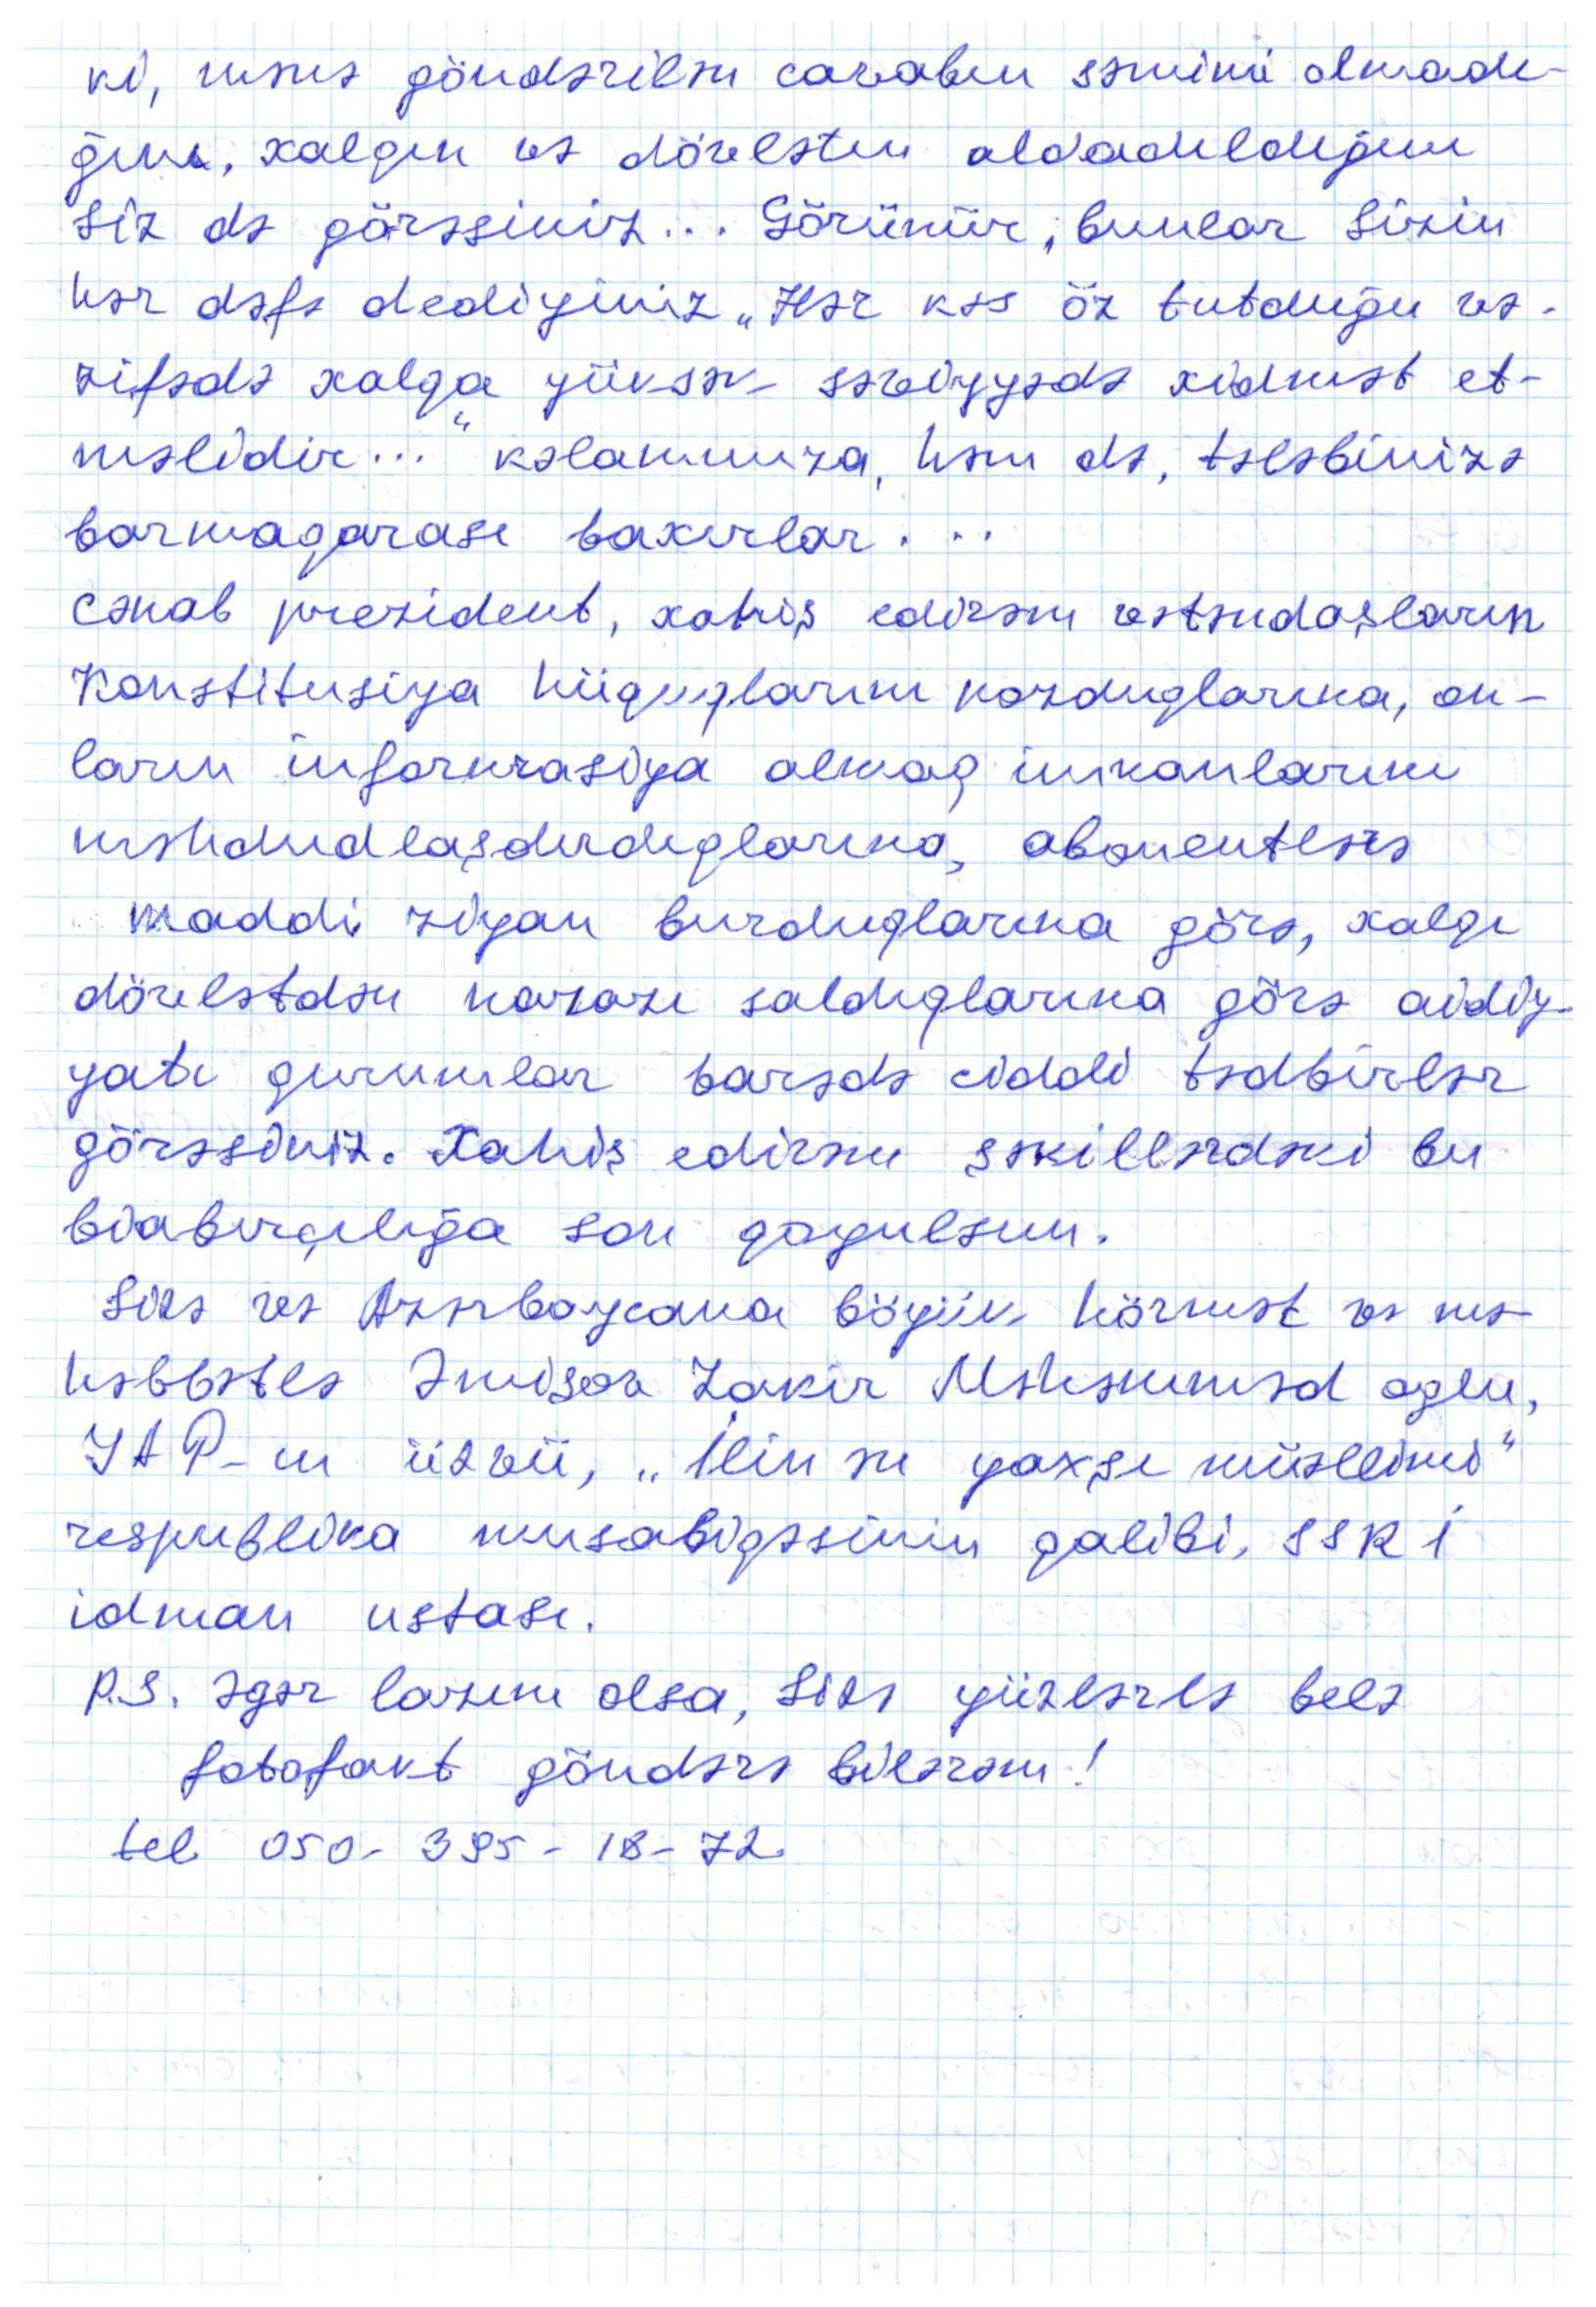 ki, mənə göndərilən cavabın səmimi olmadı-
ğını, xalqın və dövlətin aldadıldığını
Siz də görəsiniz... Görünür, bunlar Sizin
hər dəfə dediyiniz „Hər kəs öz tutduğu və-
zifədə xalqa yüksək səviyyədə xidmət et-
məlidir...“ kəlamınıza, həm də, tələbinizə
barmaqarası baxırlar...
Cənab prezident, xahiş edirəm vətəndaşların
Konstitusiya hüquqlarını pozduqlarına, on-
ların informasiya almaq imkanlarını
məhdudlaşdırdıqlarına, abonentlərə
maddi ziyan vurduqlarına görə, xalqı
dövlətdən narazı saldıqlarına görə aidiy-
yatı qurumlar barədə ciddi tədbirlər
görəsiniz. Xahiş edirəm şəkillərdəki bu
biabırçılığa son qoyulsun.
Sizə və Azərbaycana böyük hörmət və mə-
həbbətlə Əmişov Zakir Məhəmməd oğlu,
YAP-ın üzvü, „İlin ən yaxşı müəllimi“
respublika musabiqəsinin qalibi, SSRİ
idman ustası.
P.S. Əgər lazım olsa, Sizə yüzlərlə belə
fotofakt göndərə bilərəm!
tel 050-395-18-72